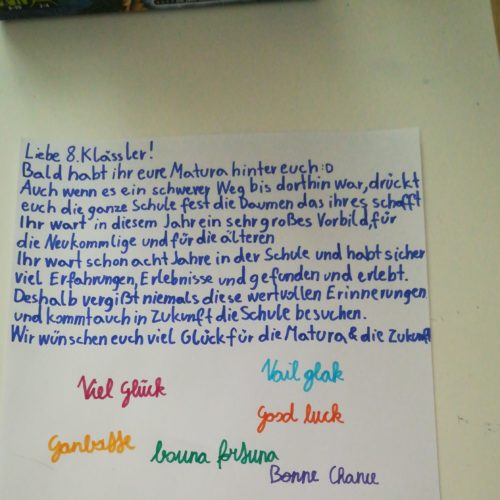 Liebe 8.Klässler!
Bald habt ihr eure Matura hinter euch :D
Auch wenn es ein schwerer Weg bis dorthin war, drückt
euch die ganze Schule fest die Daumen das ihr es schafft
Ihr wart in diesem Jahr ein sehr großes Vorbild, für
die Neukommlige und für die älteren
Ihr wart schon acht Jahre in der Schule und habt sicher
viel Erfahrungen, Erlebnisse und gefunden und erlebt.
Deshalb vergißt niemals diese wertvollen Erinnerungen
und kommt auch in Zukunft die Schule besuchen.
Wir wünschen euch viel Glück für die Matura & die Zukunft
Viel Glück
Vail glak
Good luck
Ganbatte
bouna fortuna
Bonne Chance